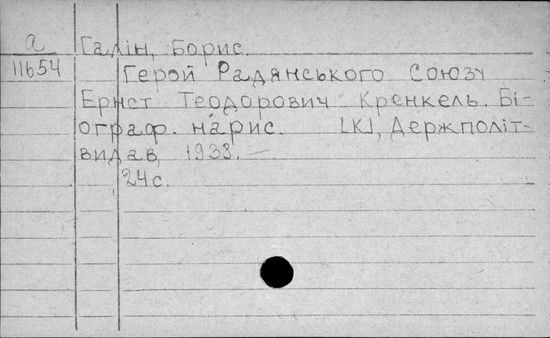 а Галін, Борис
11654 Герой Радянського Союзу
Ернст Теодорович Кренкель. Бі-
ограф. нарис. [К], Держполіт-
видав, 1938.—
24с.